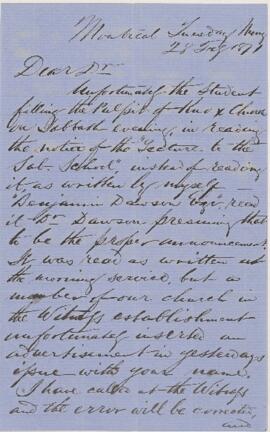 Montreal Tuesday Morng
28 Feby 1871
Dear Dr
Unfortunately the Student
filling the Pulpit of Knox Church
on Sabbath evening, in reading
the notice of the "Lecture to the
Sab. School", instead of reading
it as written by myself —
Benjamin Dawson Esqr, read
it Dr Dawson presuming that
to be the proper announcement.
It was read as written at
the morning service, but a
member of our church in
the Witness establishment
unfortunately inserted an
advertisement in yesterdays
issue with your name.
I have called at the Witness
and the error will be corrected,
and